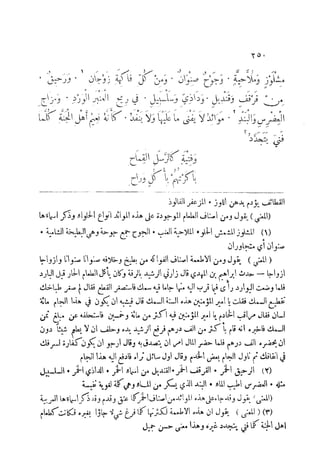 ٢٥٠
مشلوز وملاحية . وجوح صنوان . ومن كل فاكهة زوجان ١ . ورحيق .
من قرقف وقنديل . وداذي وسلسبيل . في ريح العنبر الورد . ومزاج
الخضرس والبند ٢ . موائد لا يفنى ما عليها ولا ينفد . كأنه نعيم أهل الجنة كلما
فني يتجدد ٣
وفتية كالرسل القماح
باكرتهم بأكل وراح
القطائف يؤدم بدهن اللوز . المزعفر الفالوذ
(المعنى) يقول ومن أصناف الطعام الموجودة على هذه الموائد أنواع الحلواء وذكر أسماءها
(١) المشلوز المشمش الحلو . الملاحية العنب . الجوح جمع جوحة وهي البطيخة الشامية .
صنوان أي متجاوران
(المعنى) يقول ومن الأطعمة أصناف الفواكه من بطيخ وخلافه صنواناً صنواناً وأزواجاً
أزواجاً — حدث ابراهيم بن المهدي قال زارني الرشيد بالرقة وكان يأكل الطعام الحار قبل البارد
فلما وضعت البوارد رأى فيما قرب اليه منها جاماً فيه سمك فاستصغر القطع فقال لم صغر طباخك
تقطيع السمك فقلت يا أمير المؤمنين هذه ألسنة السمك قال فيشبه أن يكون في هذا الجام مائة
لسان فقال مراقب الخادم يا أمير المؤمنين فيه أكثر من مائة وخمسين فاستحلفه عن مبلغ ثمن
السمك فأخبره أنه قام بأكثر من ألف درهم فرفع الرشيد يده وحلف أن لا يطعم شيئاً دون
أن يحضره ألف درهم فلما حضر المال أمر أن يتصدق به وقال أرجو أن يكون كفارة لسرفك
في انفاقك ثم ناول الجام بعض الخدم وقال أول سائل تراه فادفع اليه هذا الجام
(٢) الرحيق الخمر . القرقف الخمر . القنديل من أسماء الخمر . الداذي الخمر . السلسبيل
مثله . الخضرس أطيب الماء . البند الذي يسكر من الماء وهي كلمة لغوية نفيسة
(المعنى) يقول وقد جاء على هذه الموائد من أصناف الخمر كما عتق وقدم وقد ذكر أسماءها العربية
(٣) (المعنى) يقول ان هذه الأطعمة لكثرتها كلما فرغ شيء جاؤا بغيره فكانت كطعام
أهل الجنة كلما فني يتجدد غيره وهذا معنى حسن جميل